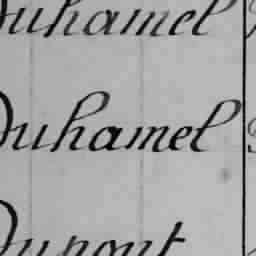 Duhamel
Duhamel
Dupont